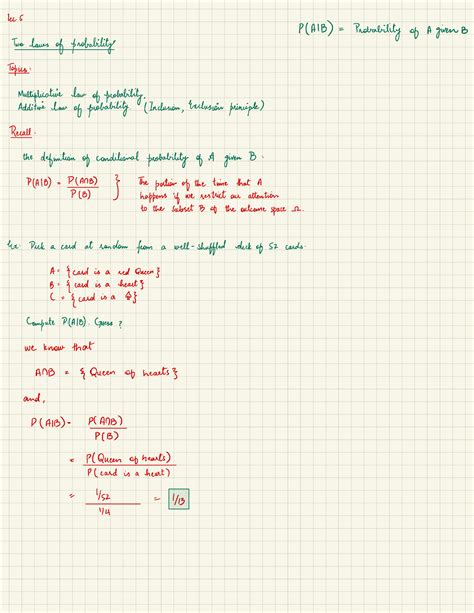 lec 6
P(A|B) = Probability of A given B
Two laws of probability
Topics:
Multiplicative law of probability.
Additive law of probability (Inclusion, Exclusion principle)
Recall:
the definition of conditional probability of A given B.
P(A|B) = P(A∩B) / P(B) } The portion of the time that A
happens if we restrict our attention
to the subset B of the outcome space Ω.
Ex: Pick a card at random from a well-shuffled deck of 52 cards.
A = {card is a red Queen}
B = {card is a heart}
C = {card is a }
Compute P(A|B). Guess?
we know that
A∩B = {Queen of hearts}
and,
P(A|B) = P(A∩B) / P(B)
= P(Queen of hearts) / P(card is a heart)
= 1/52 / 1/4 = 1/13